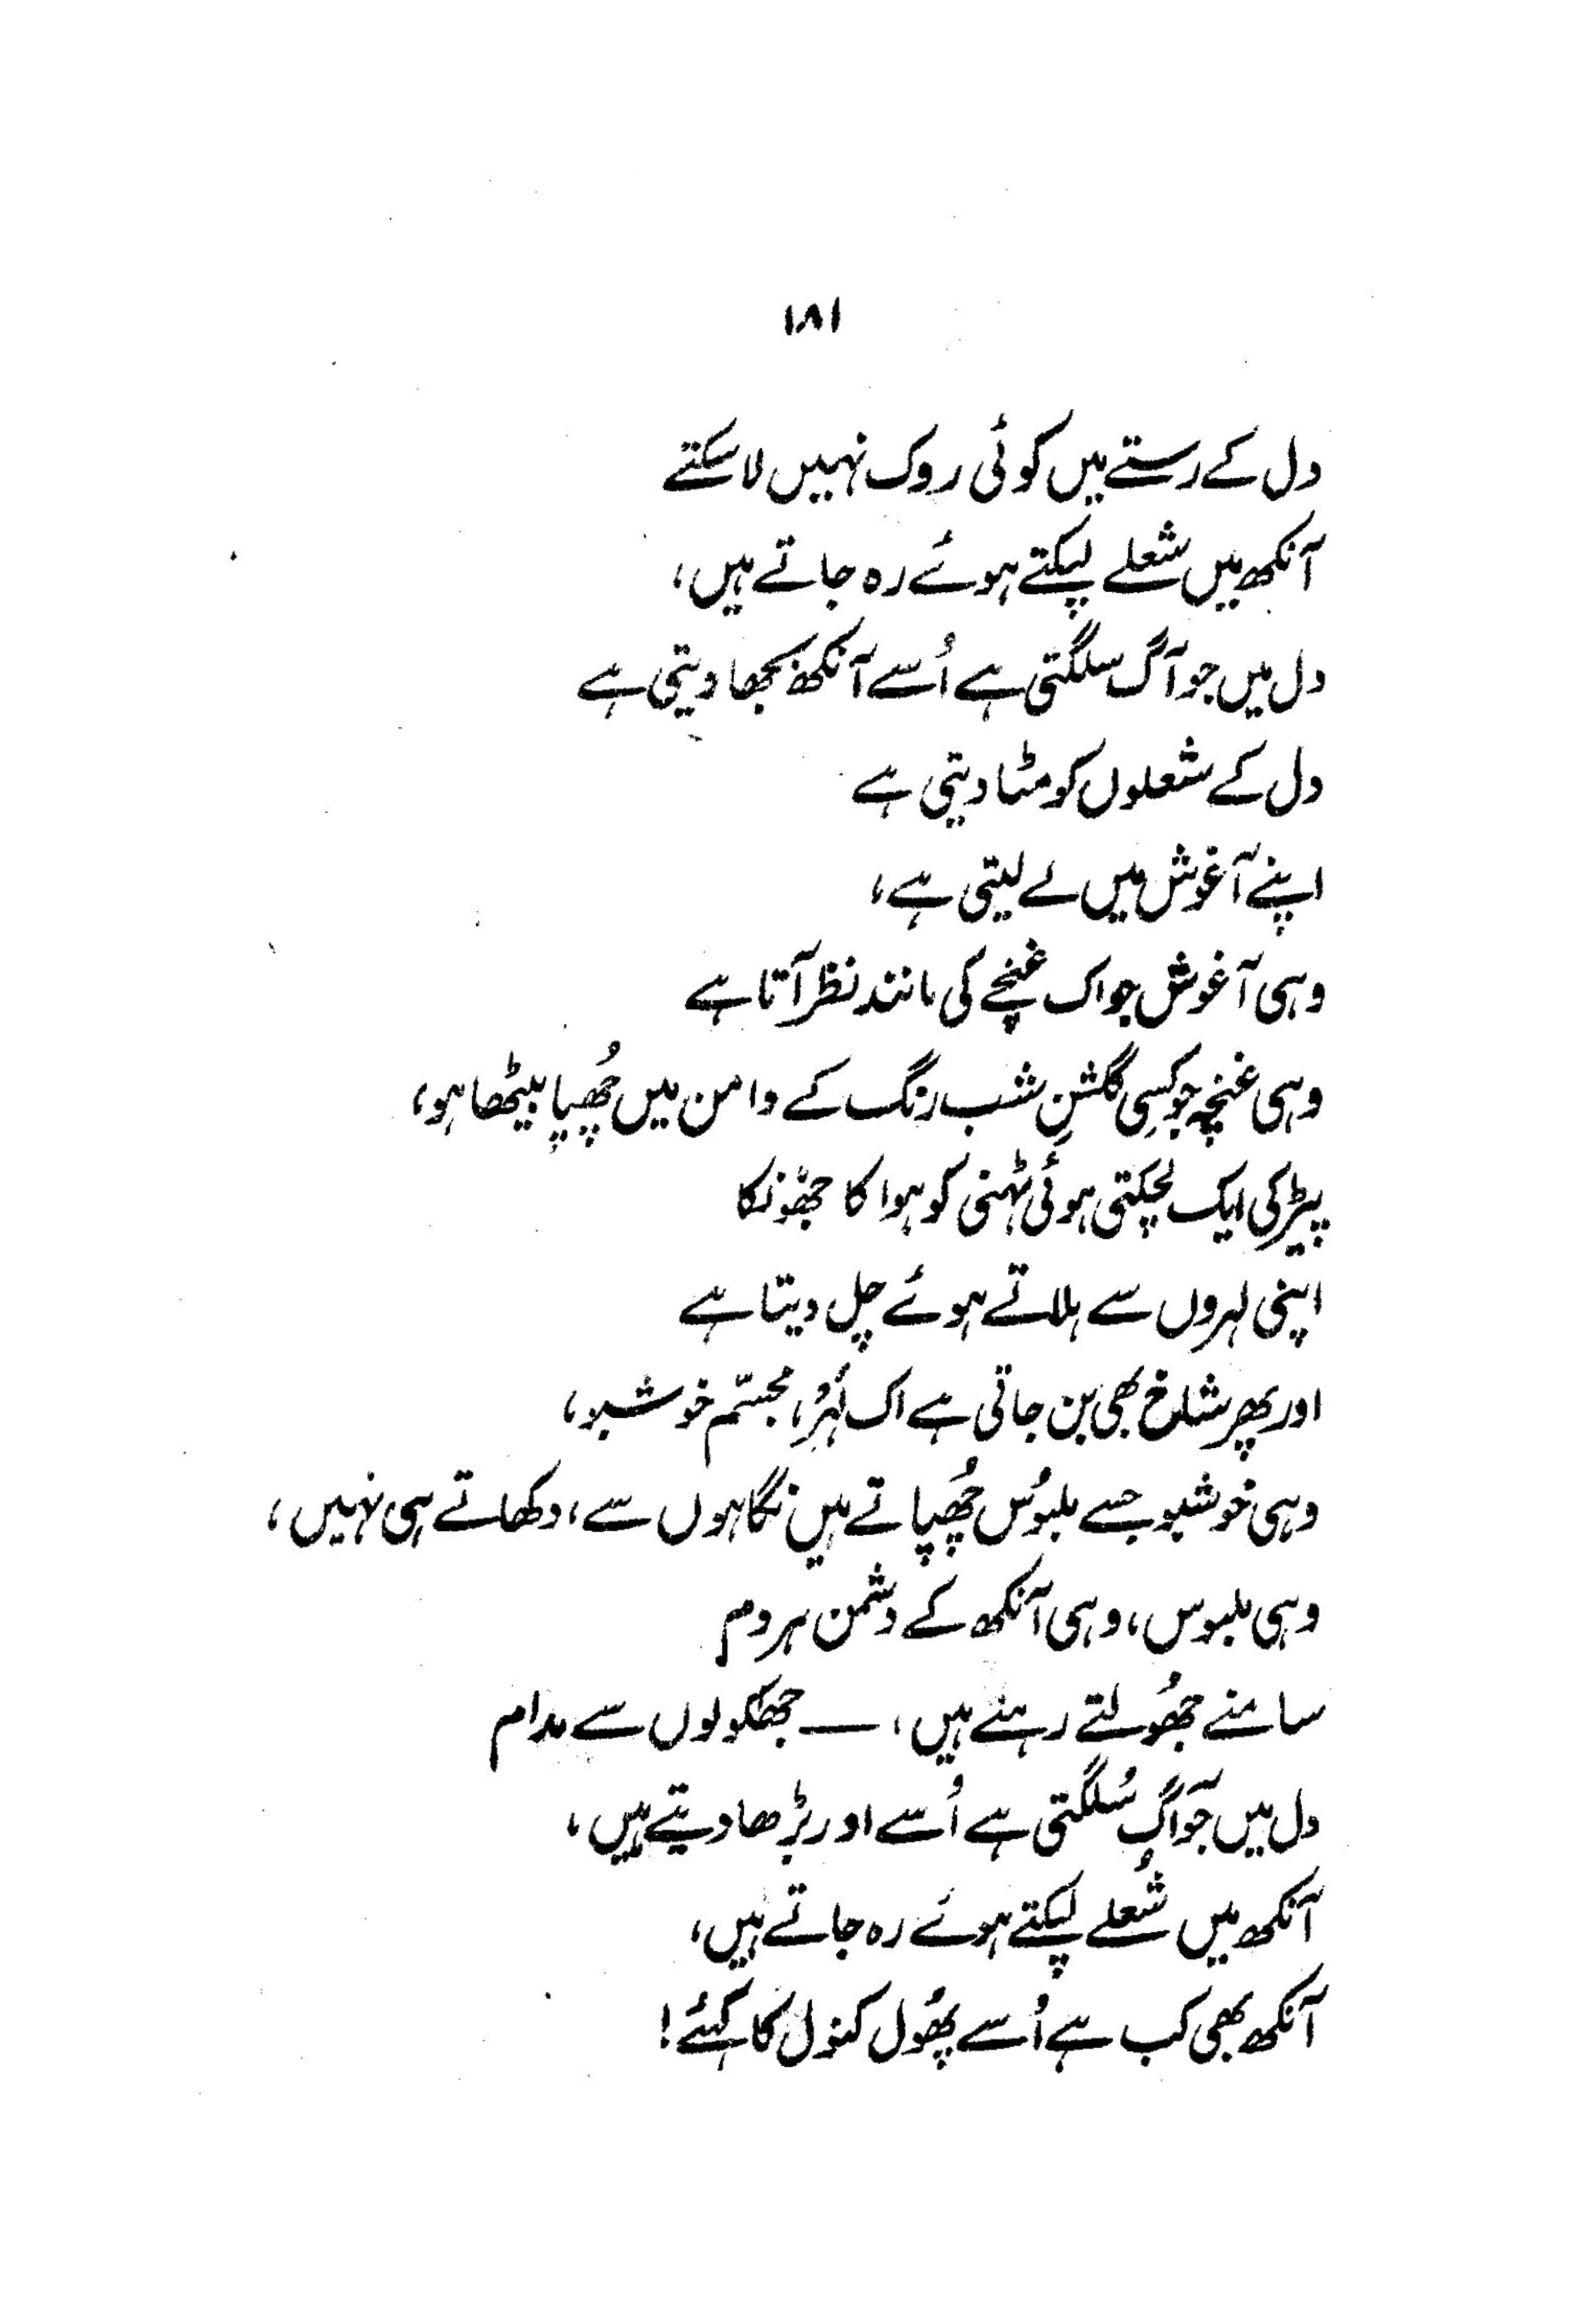 ۱۸۱
دل کے رستے میں کوئی روک نہیں لا سکتے
آنکھ میں شعلے لپکتے ہوئے رہ جاتے ہیں،
دل میں جو آگ سلگتی ہے اُسے آنکھ بجھا دیتی ہے
دل کے شعلوں کو مٹا دیتی ہے
اپنے آغوش میں لے لیتی ہے،
وہی آغوش جو اک غنچے کی مانند نظر آتا ہے
وہی غنچہ جو کسِی گلشنِ شب رنگ کے دامن میں چُھپا بیٹھا ہو،
پیڑ کی ایک لچکتی ہوئی ٹہنی کو ہوا کا جھونکا
اپنی لہروں سے ہلاتے ہوئے چل دیتا ہے
اور پھر شاخ بھی بن جاتی ہے اک لہر، مجسّم خوشبو،
وہی خوشبو جسے ملبوُس چُھپاتے ہیں نگاہوں سے، دکھاتے ہی نہیں،
وہی ملبوس، وہی آنکھ کے دشمن ہر دم
سامنے جھُولتے رہتے ہیں، — جھکولوں سے مدام
دل میں جو آگ سُلگتی ہے اُسے اور بڑھا دیتے ہیں،
آنکھ میں شُعلے لپکتے ہوئے رہ جاتے ہیں،
آنکھ بھی کب ہے اُسے پھُول کنول کا کہئے!